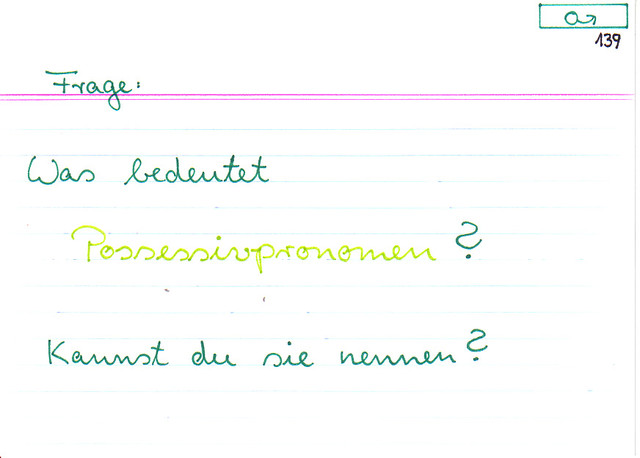 139
Frage:
Was bedeutet
Possessivpronomen?
Kannst du sie nennen?